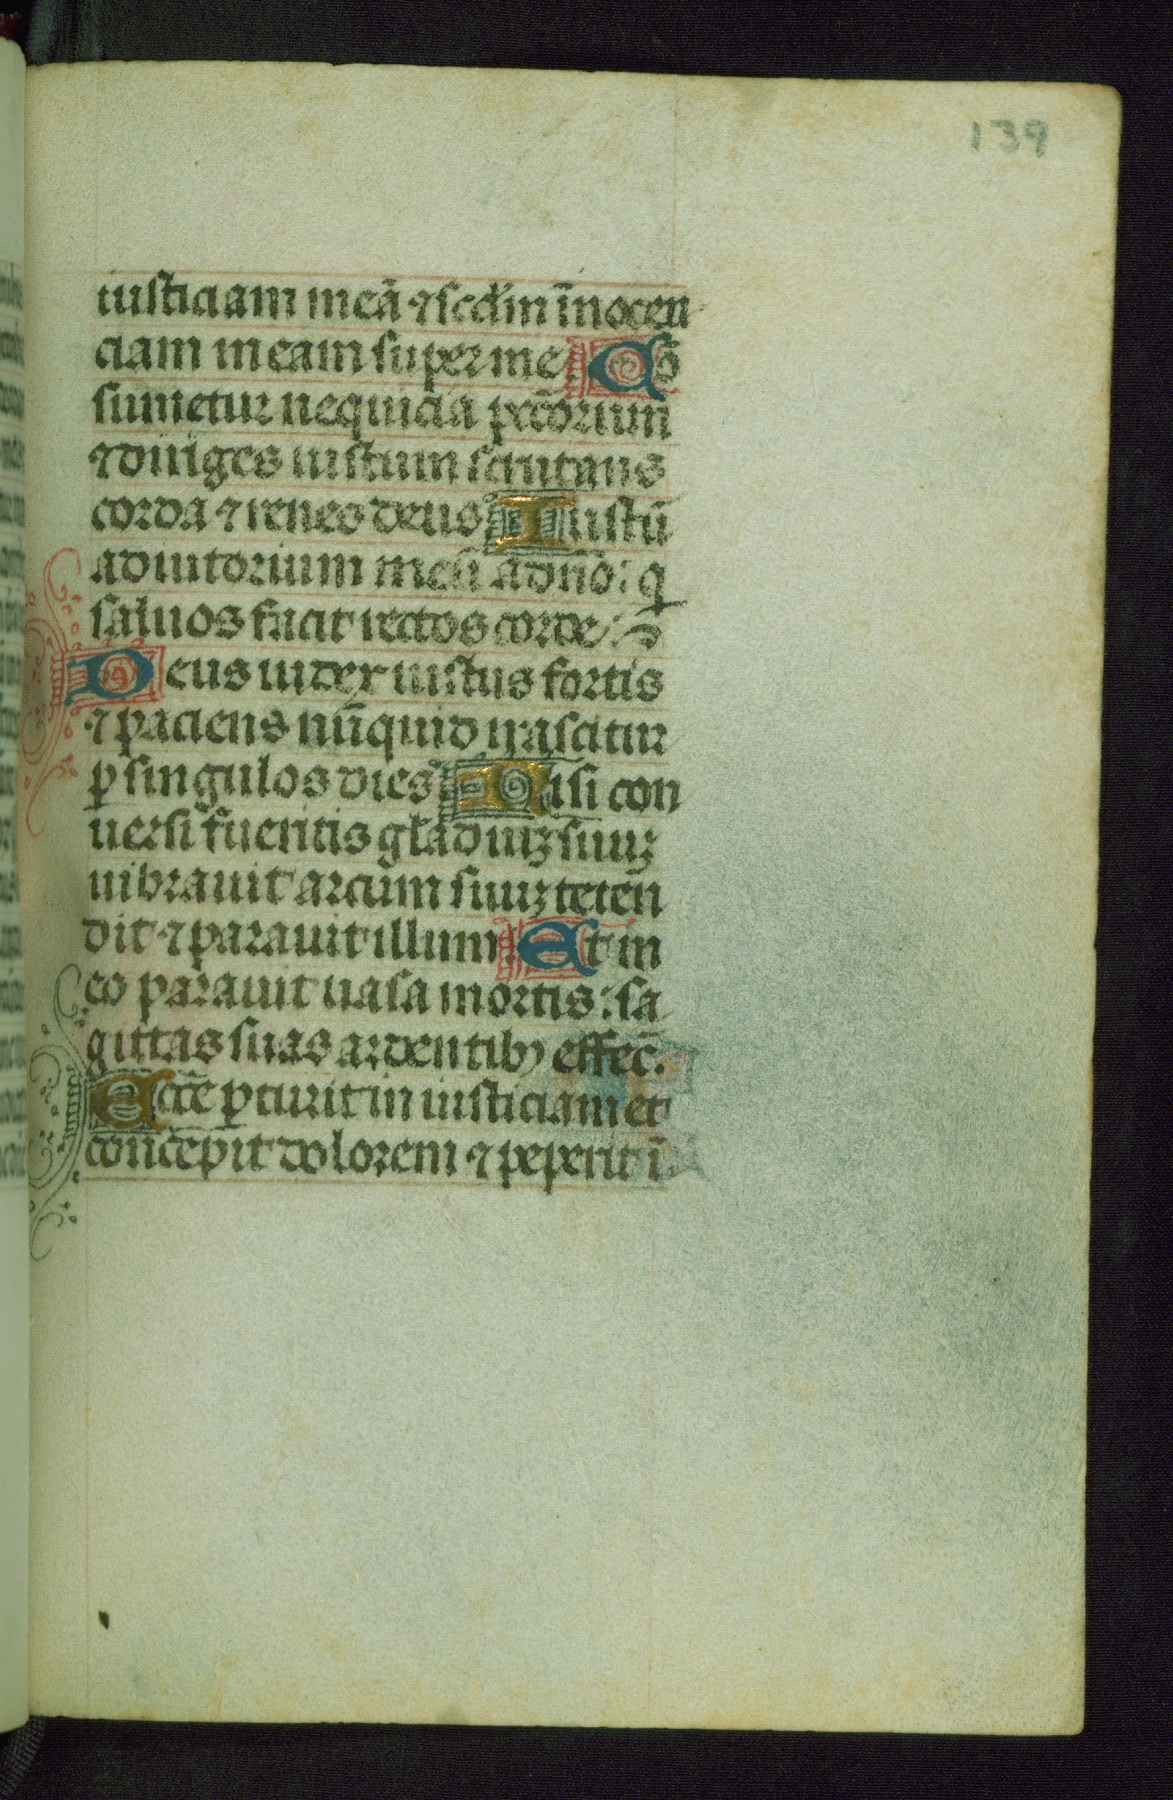 139
iusticiam meā ⁊ scd̄m īnocen
ciam meam super me. Cō
sumetur nequicia pctōrum
⁊ diriges iustum scrutans
corda ⁊ renes deus Iustū
adiutorium meū a dn̄o: q̄
saluos facit rectos corde:
Deus iudex iustus fortis
⁊ paciens nūquid irascitur
ꝑ singulos dies Nisi con
uersi fueritis gladiuꝫ suuꝫ
uibrauit arcum suuꝫ teten
dit ⁊ parauit illum. Et in
eo parauit uasa mortis: sa
gittas suas ardentibꝫ effec̄.
Ecce ꝑturit in iusticiam et
concepit dolorem ⁊ peperit ī